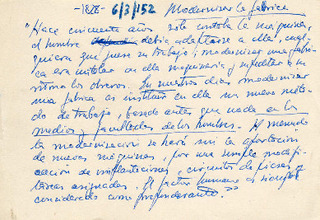 -1828- 6/3/152 Modernizar la fábrica
"Hace cincuenta años solo contaba la máquina;
el hombre debía adaptarse a ella, cual-
quiera que fuese su trabajo; modernizar una fábri-
ca era instalar en ella maquinaria y sujetar a su
ritmo los obreros. En nuestros días modernizar
una fábrica es instituir en ella un nuevo méto-
do de trabajo, basado antes que nada en los
medios y facultades de los hombres. A menudo
la modernización se hará sin la aportación
de nuevas máquinas, por una simple modifi-
cación de implantaciones, circuitos de piezas y
tareas asignadas. El factor humano es siempre
considerado como preponderante."